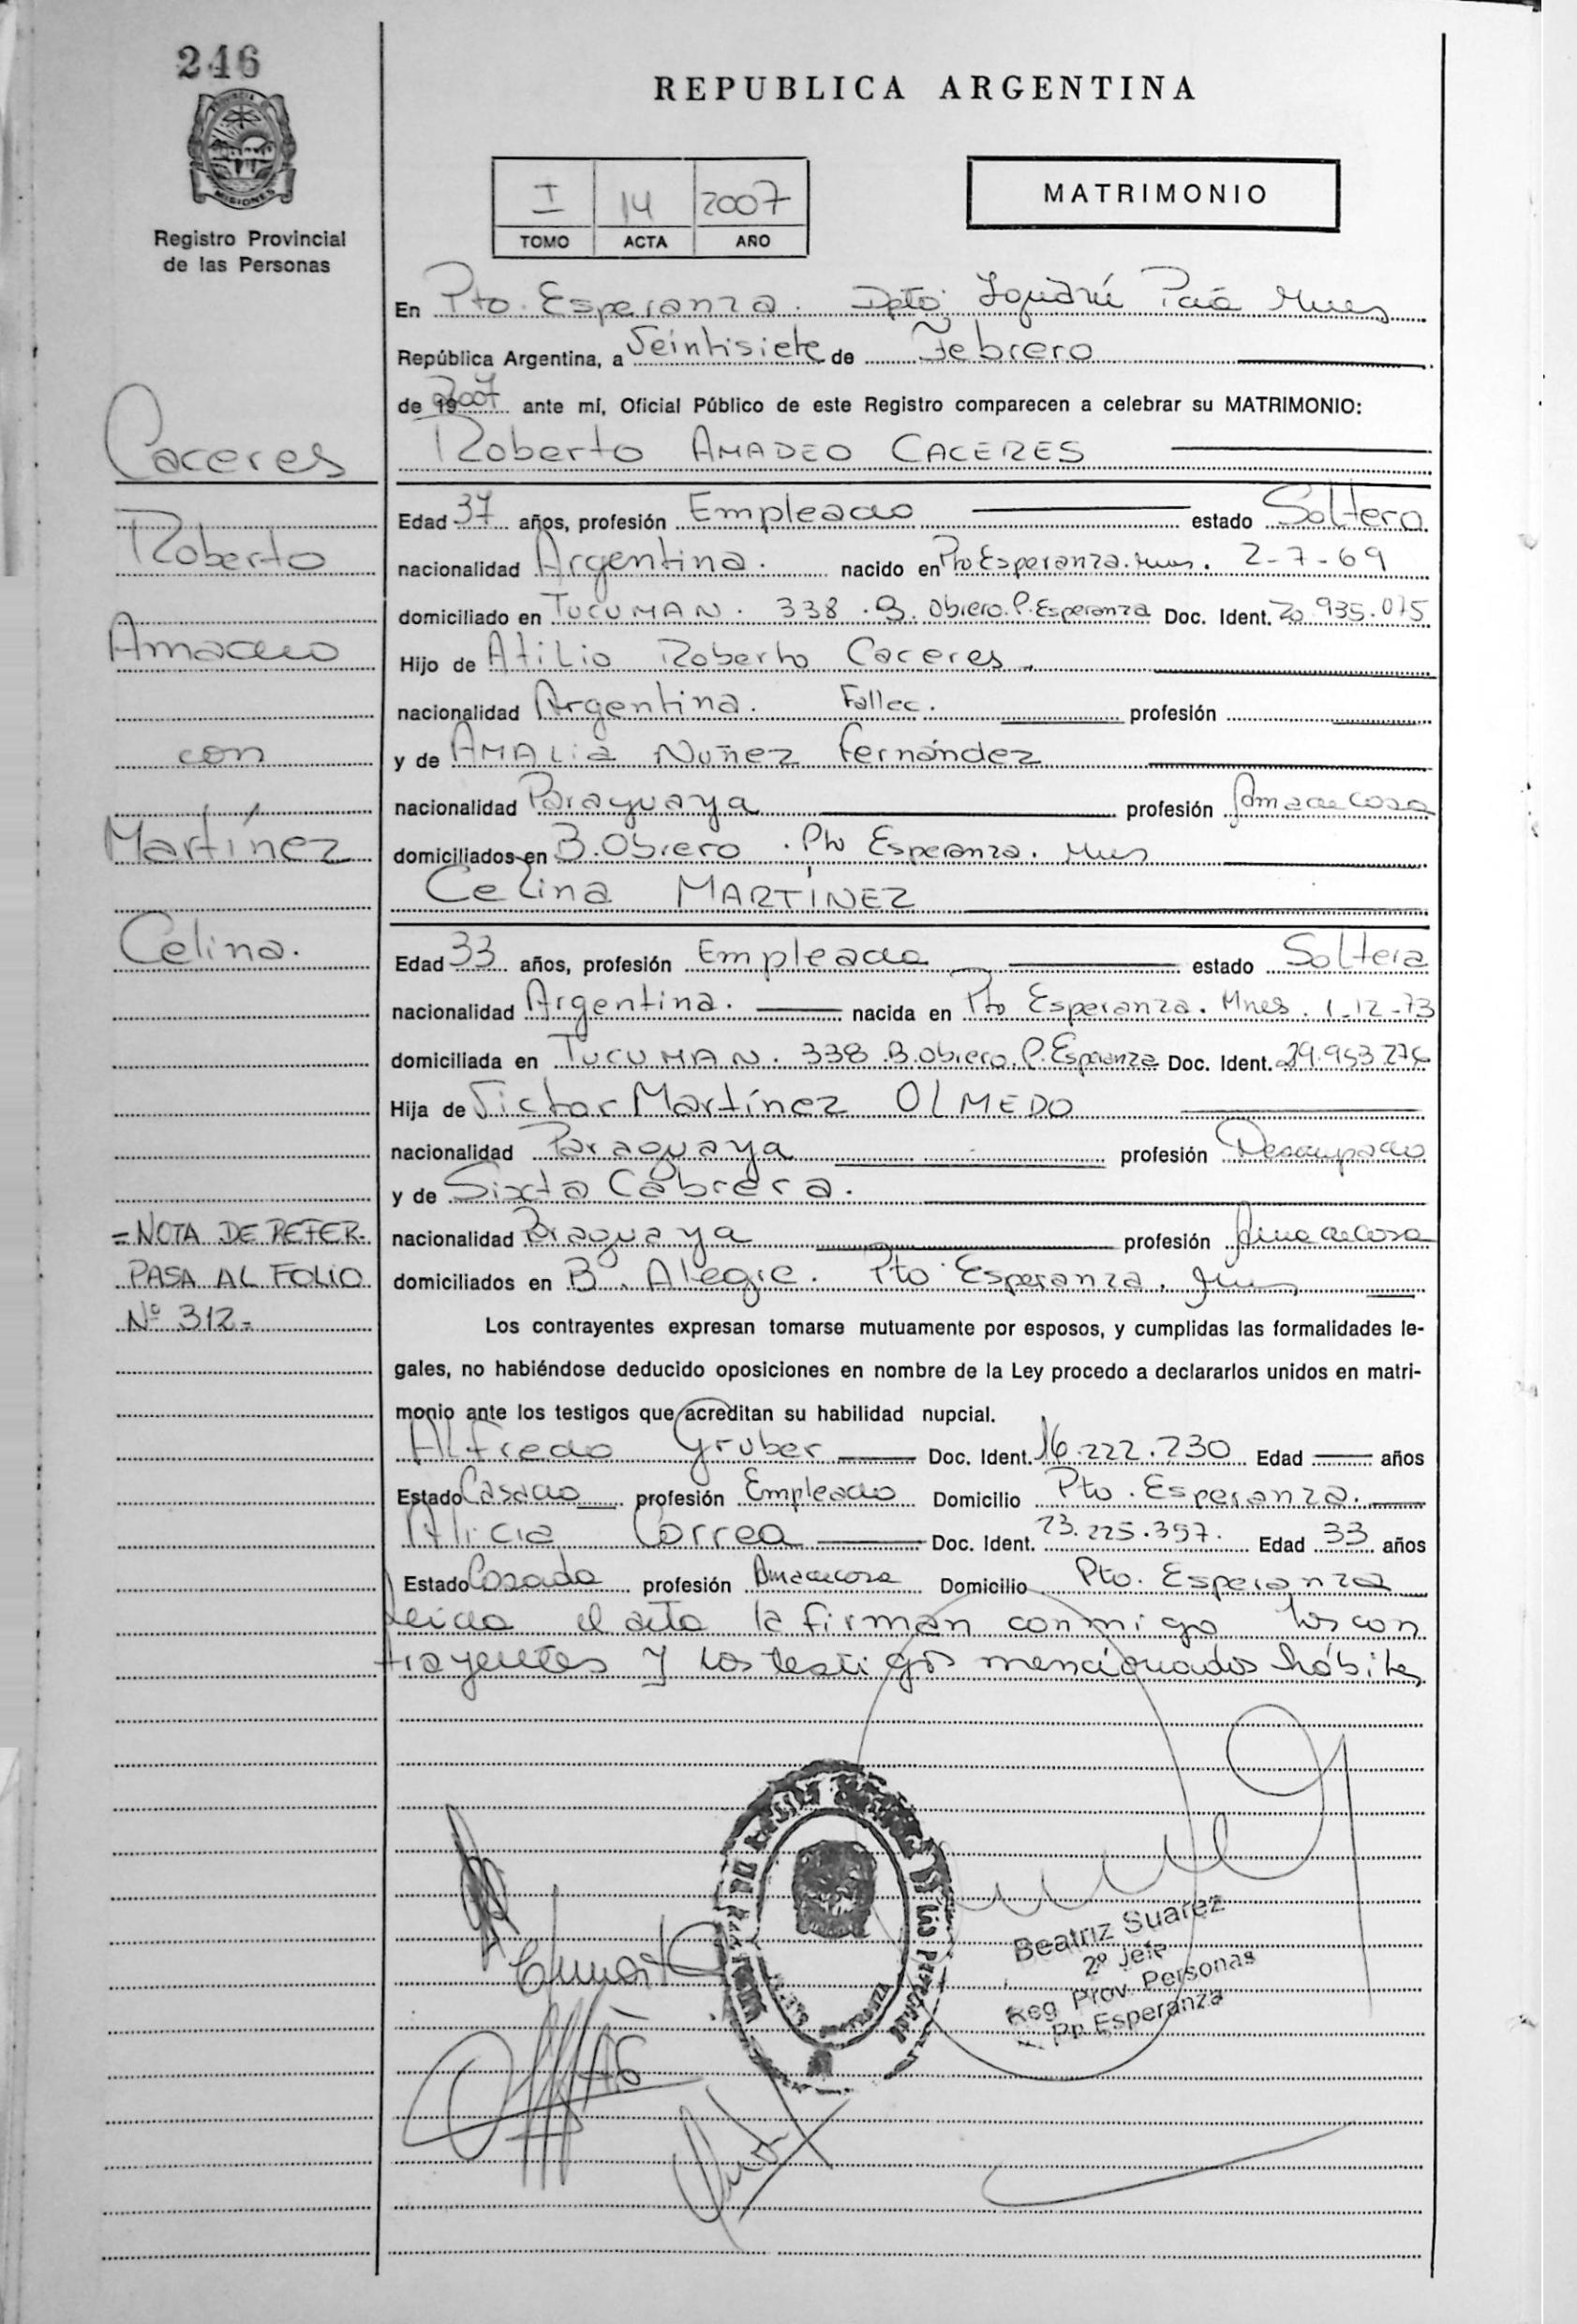 246
REPUBLICA ARGENTINA
PROVINCIA
MISIONES
Registro Provincial
de las Personas
I 14 2007
TOMO ACTA AÑO
MATRIMONIO
En Pto. Esperanza. Dpto Iguazú Pcia Mnes
República Argentina, a Veintisiete de Febrero
de 19 2007 ante mí, Oficial Público de este Registro comparecen a celebrar su MATRIMONIO:
Roberto AMADEO CACERES
Edad 37 años, profesión Empleado estado Soltero
nacionalidad Argentina. nacido en Pto Esperanza. Mnes. 2-7-69
domiciliado en TUCUMAN. 338 .B. Obrero. P. Esperanza Doc. Ident. 20.935.075
Hijo de Atilio Roberto Caceres
nacionalidad Argentina. Fallec. profesión
y de AMALia Nuñez Fernández
nacionalidad Paraguaya profesión Ama de Casa
domiciliados en B. Obrero . Pto Esperanza. Mnes
Celina MARTÍNEZ
Edad 33 años, profesión Empleada estado Soltera
nacionalidad Argentina. nacida en Pto Esperanza. Mnes. 1-12-73
domiciliada en TUCUMAN. 338 .B. Obrero. P. Esperanza Doc. Ident. 29.953.276
Hija de Victor Martínez OLMEDO
nacionalidad Paraguaya profesión Desocupado
y de Sixta Cabrera.
nacionalidad Paraguaya profesión Ama de Casa
domiciliados en B. Alegre. Pto Esperanza. Mnes
Los contrayentes expresan tomarse mutuamente por esposos, y cumplidas las formalidades le-
gales, no habiéndose deducido oposiciones en nombre de la Ley procedo a declararlos unidos en matri-
monio ante los testigos que acreditan su habilidad nupcial.
Alfredo Gruber Doc. Ident. 16.222.230 Edad años
Estado Casado profesión Empleado Domicilio Pto. Esperanza.
Alicia Correa Doc. Ident. 23.225.397. Edad 33 años
Estado Casada profesión Ama de casa Domicilio Pto. Esperanza
leida el acta la firman conmigo los con
trayentes y los testigos mencionados hábiles
Caceres
Roberto
Amadeo
con
Martínez
Celina.
=NOTA DE REFER.
PASA AL FOLIO
Nº 312=
Beatriz Suarez
2º Jefe
Reg Prov. Personas
Esperanza